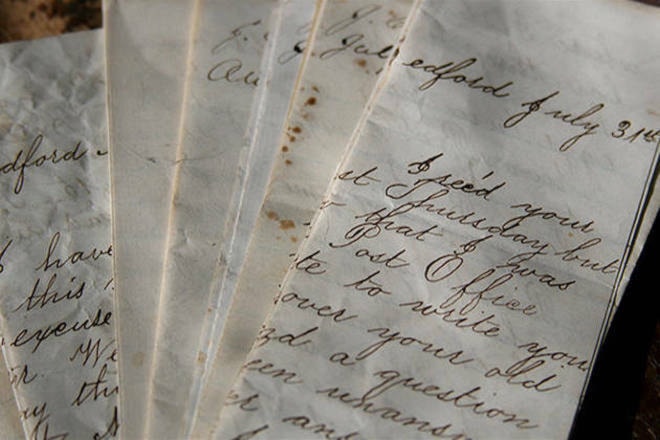 dford
I have
this
excuse
We
Au
July
edford July 31st
I rec'd your
st Thursday but
that I was
Post Office
te to write you
over your old
zd a question
een unansw
er an